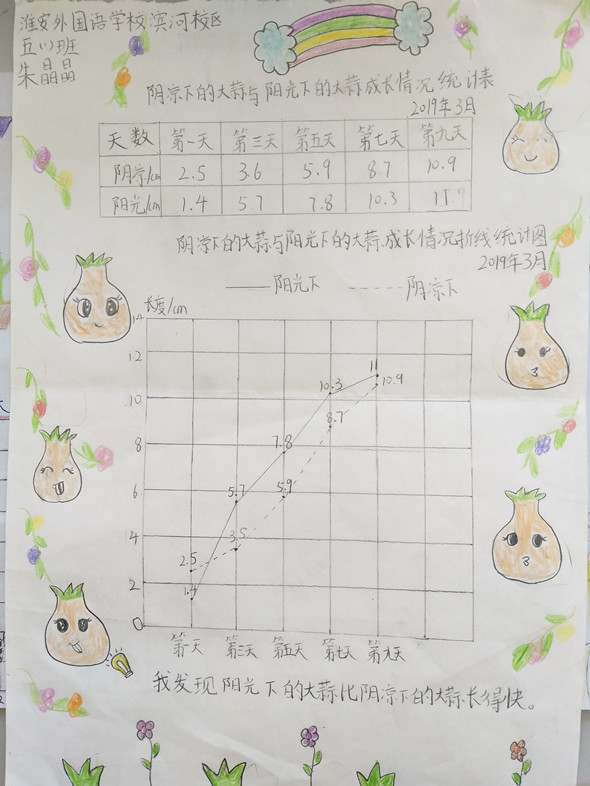 淮安外国语学校滨河校区
五(1)班
朱晶晶
阴凉下的大蒜与阳光下的大蒜成长情况统计表
2019年3月
天数 第一天 第三天 第五天 第七天 第九天
阴凉/cm 2.5 3.6 5.9 8.7 10.9
阳光/cm 1.4 5.7 7.8 10.3
阴凉下的大蒜与阳光下的大蒜成长情况折线统计图
2019年3月
阳光下 阴凉下
长度/cm
14
12
11
10.3 10.9
10
8.7
8 7.8
6 5.7 5.9
4 3.5
2.5
2 1.4
0
第一天 第三天 第五天 第七天 第九天
我发现阳光下的大蒜比阴凉下的大蒜长得快。